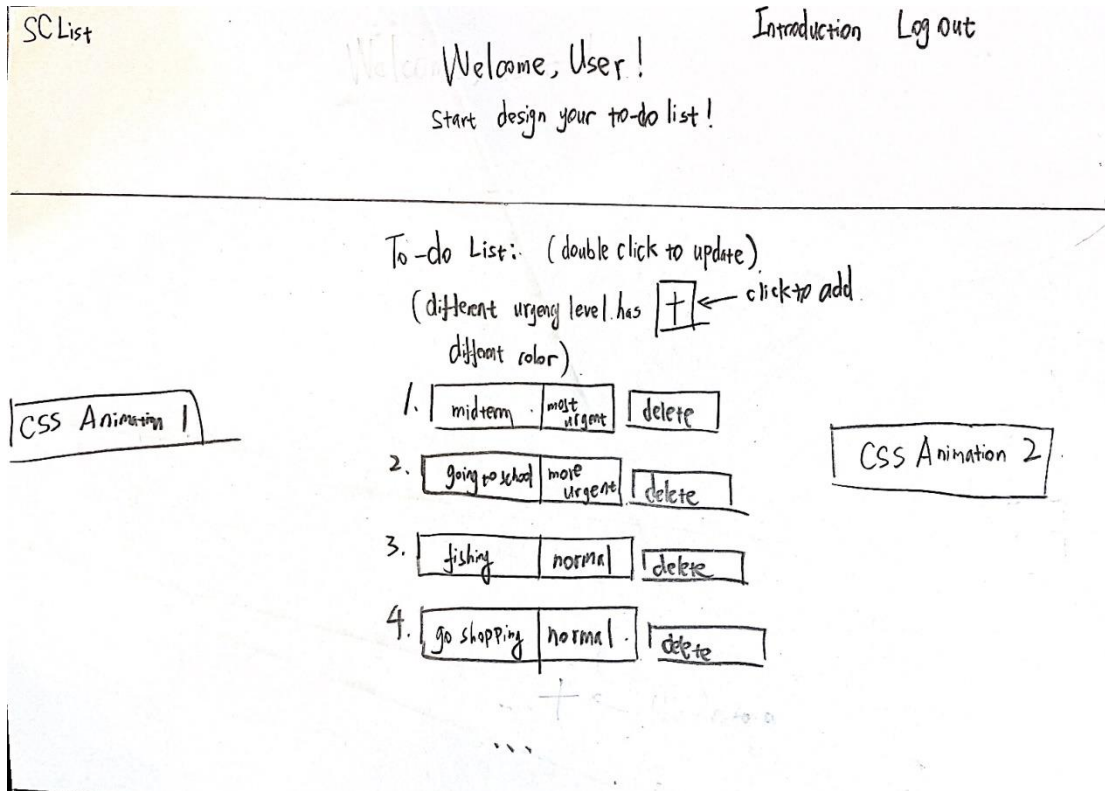 SC List
Introduction Log out
Welcome, User!
start design your to-do list!
To-do List: (double click to update)
(different urgeny level has + ← click to add
different color)
1. midterm most urgent delete
2. going to school more urgent delete
3. fishing normal delete
4. go shopping normal delete
...
CSS Animation 1
CSS Animation 2